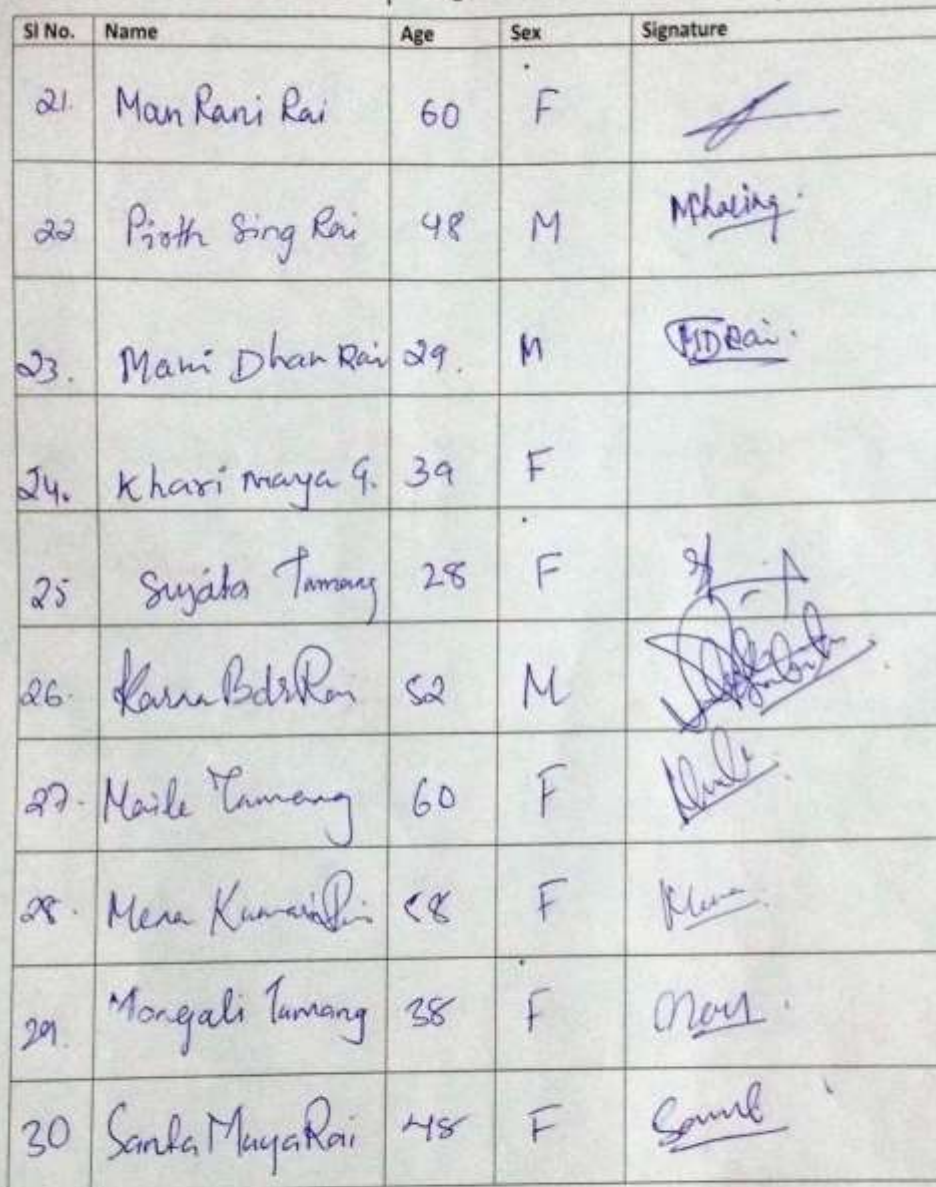 Sl No. Name Age Sex Signature
21. Man Rani Rai 60 F
22 Pirth Sing Rai 48 M
23. Mani Dhan Rai 29. M MDRai.
24. Khari maya G. 39 F
25 Sujata Tamang 28 F
26. Karna Bdr Rai 52 M
27. Maile Tamang 60 F
28. Mena Kumari Rai 58 F Mena
29. Mongali Tamang 38 F
30 Santa Maya Rai 48 F